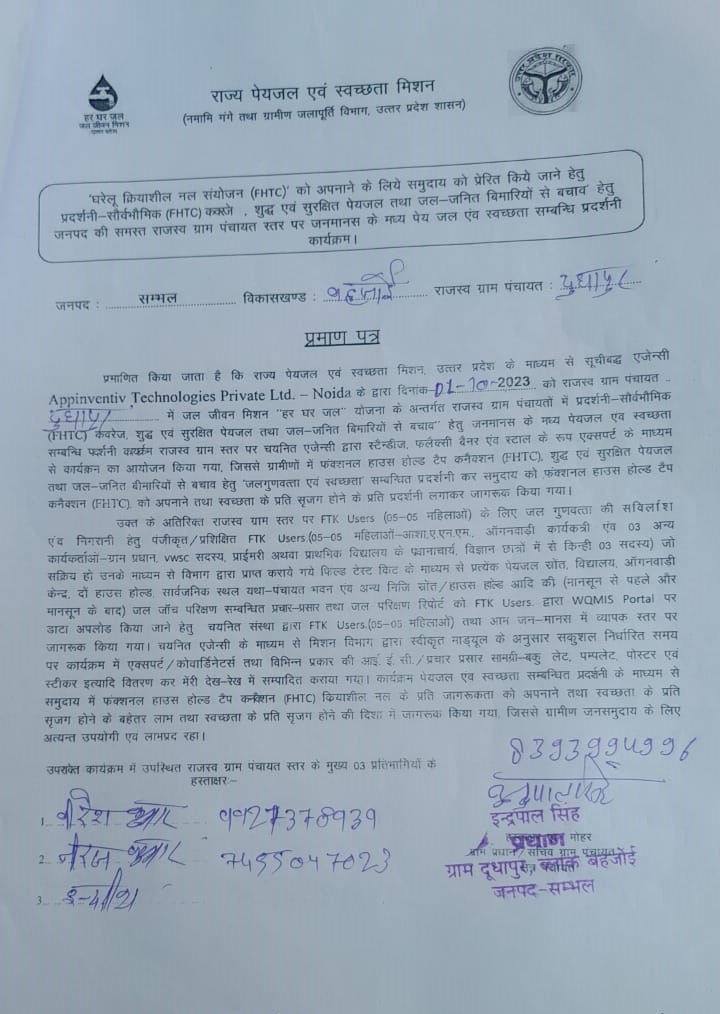 हर घर जल
जल जीवन मिशन
उत्तर प्रदेश
राज्य पेयजल एवं स्वच्छता मिशन
(नमामि गंगे तथा ग्रामीण जलापूर्ति विभाग, उत्तर प्रदेश शासन)
उत्तर प्रदेश सरकार
'घरेलू क्रियाशील नल संयोजन (FHTC)' को अपनाने के लिये समुदाय को प्रेरित किये जाने हेतु
प्रदर्शनी–सौर्वभौमिक (FHTC) कवरेज , शुद्ध एवं सुरक्षित पेयजल तथा जल–जनित बिमारियों से बचाव' हेतु
जनपद की समस्त राजस्व ग्राम पंचायत स्तर पर जनमानस के मध्य पेय जल एंव स्वच्छता सम्बन्धि प्रदर्शनी
कार्यक्रम।
जनपद : सम्भल विकासखण्ड : बहजोई राजस्व ग्राम पंचायत : दुधापुर
प्रमाण पत्र
प्रमाणित किया जाता है कि राज्य पेयजल एवं स्वच्छता मिशन, उत्तर प्रदेश के माध्यम से सूचीबद्ध एजेन्सी
Appinventiv Technologies Private Ltd. – Noida के द्वारा दिनांक 01-10-2023 को राजस्व ग्राम पंचायत
दुधापुर में जल जीवन मिशन "हर घर जल" योजना के अन्तर्गत राजस्व ग्राम पंचायतों में प्रदर्शनी–सौर्वभौमिक
(FHTC) कवरेज, शुद्ध एवं सुरक्षित पेयजल तथा जल–जनित बिमारियों से बचाव" हेतु जनमानस के मध्य पेयजल एवं स्वच्छता
सम्बन्धि प्रर्दशनी कार्यक्रम राजस्व ग्राम स्तर पर चयनित एजेन्सी द्वारा स्टैन्डीज, फलेक्सी बैनर एंव स्टाल के रूप एक्सपर्ट के माध्यम
से कार्यक्रम का आयोजन किया गया, जिससे ग्रामीणों में फंक्शनल हाउस होल्ड टैप कनैक्शन (FHTC), शुद्ध एवं सुरक्षित पेयजल
तथा जल–जनित बीमारियों से बचाव हेतु 'जलगुणवत्ता एंव स्वच्छता' सम्बन्धित प्रदर्शनी कर समुदाय को फंक्शनल हाउस होल्ड टैप
कनैक्शन (FHTC), को अपनाने तथा स्वच्छता के प्रति सृजग होने के प्रति प्रदर्शनी लगाकर जागरूक किया गया।
उक्त के अतिरिक्त राजस्व ग्राम स्तर पर FTK Users (05-05 महिलाओं) के लिए जल गुणवत्ता की सर्विलांश
एंव निगरानी हेतु पंजीकृत/प्रशिक्षित FTK Users.(05-05 महिलाओं–आशा,ए.एन.एम., ऑगनवाड़ी कार्यकत्री एंव 03 अन्य
कार्यकर्ताओं–ग्राम प्रधान, vwsc सदस्य, प्राईमरी अथवा प्राथमिक विद्यालय के प्रधानाचार्य, विज्ञान छात्रों में से किन्ही 03 सदस्य) जो
सक्रिय हो उनके माध्यम से विभाग द्वारा प्राप्त कराये गये फिल्ड टेस्ट किट के माध्यम से प्रत्येक पेयजल स्रोत, विद्यालय, ऑगनवाड़ी
केन्द्र, दों हाउस होल्ड, सार्वजनिक स्थल यथा–पंचायत भवन एंव अन्य निजि स्रोत/हाउस होल्ड आदि की (मानसून से पहले और
मानसून के बाद) जल जॉच परिक्षण सम्बन्धित प्रचार–प्रसार तथा जल परिक्षण रिपोर्ट को FTK Users. द्वारा WQMIS Portal पर
डाटा अपलोड किया जाने हेतु चयनित संस्था द्वारा FTK Users.(05-05 महिलाओं) तथा आम जन–मानस में व्यापक स्तर पर
जागरूक किया गया। चयनित एजेन्सी के माध्यम से मिशन विभाग द्वारा स्वीकृत माड्यूल के अनुसार सकुशल निर्धारित समय
पर कार्यक्रम में एक्सपर्ट/कोवार्डिनेटर्स तथा विभिन्न प्रकार की आई. ई. सी./प्रचार प्रसार सामग्री–बकु लेट, पम्पलेट, पोस्टर एवं
स्टीकर इत्यादि वितरण कर मेरी देख–रेख में सम्पादित कराया गया। कार्यक्रम पेयजल एव स्वच्छता सम्बन्धित प्रदर्शनी के माध्यम से
समुदाय में फंक्शनल हाउस होल्ड टैप कनैक्शन (FHTC) कियाशील नल के प्रति जागरूकता को अपनाने तथा स्वच्छता के प्रति
सृजग होने के बेहतर लाभ तथा स्वच्छता के प्रति सृजग होने की दिशा में जागरूक किया गया, जिससे ग्रामीण जनसमुदाय के लिए
अत्यन्त उपयोगी एवं लाभप्रद रहा।
8393994996
उपरोक्त कार्यक्रम में उपस्थित राजस्व ग्राम पंचायत स्तर के मुख्य 03 प्रतिभागियों के
हस्ताक्षरः–
इन्द्रपाल सिंह
1. वीरेश कुमार 9927378939
मोहर
प्रधान
ग्राम प्रधान/सचिव ग्राम पंचायत
2. नीरज कुमार 7455047023
ग्राम दूधापुर ब्लाक बहजोई
जनपद–सम्भल
3.